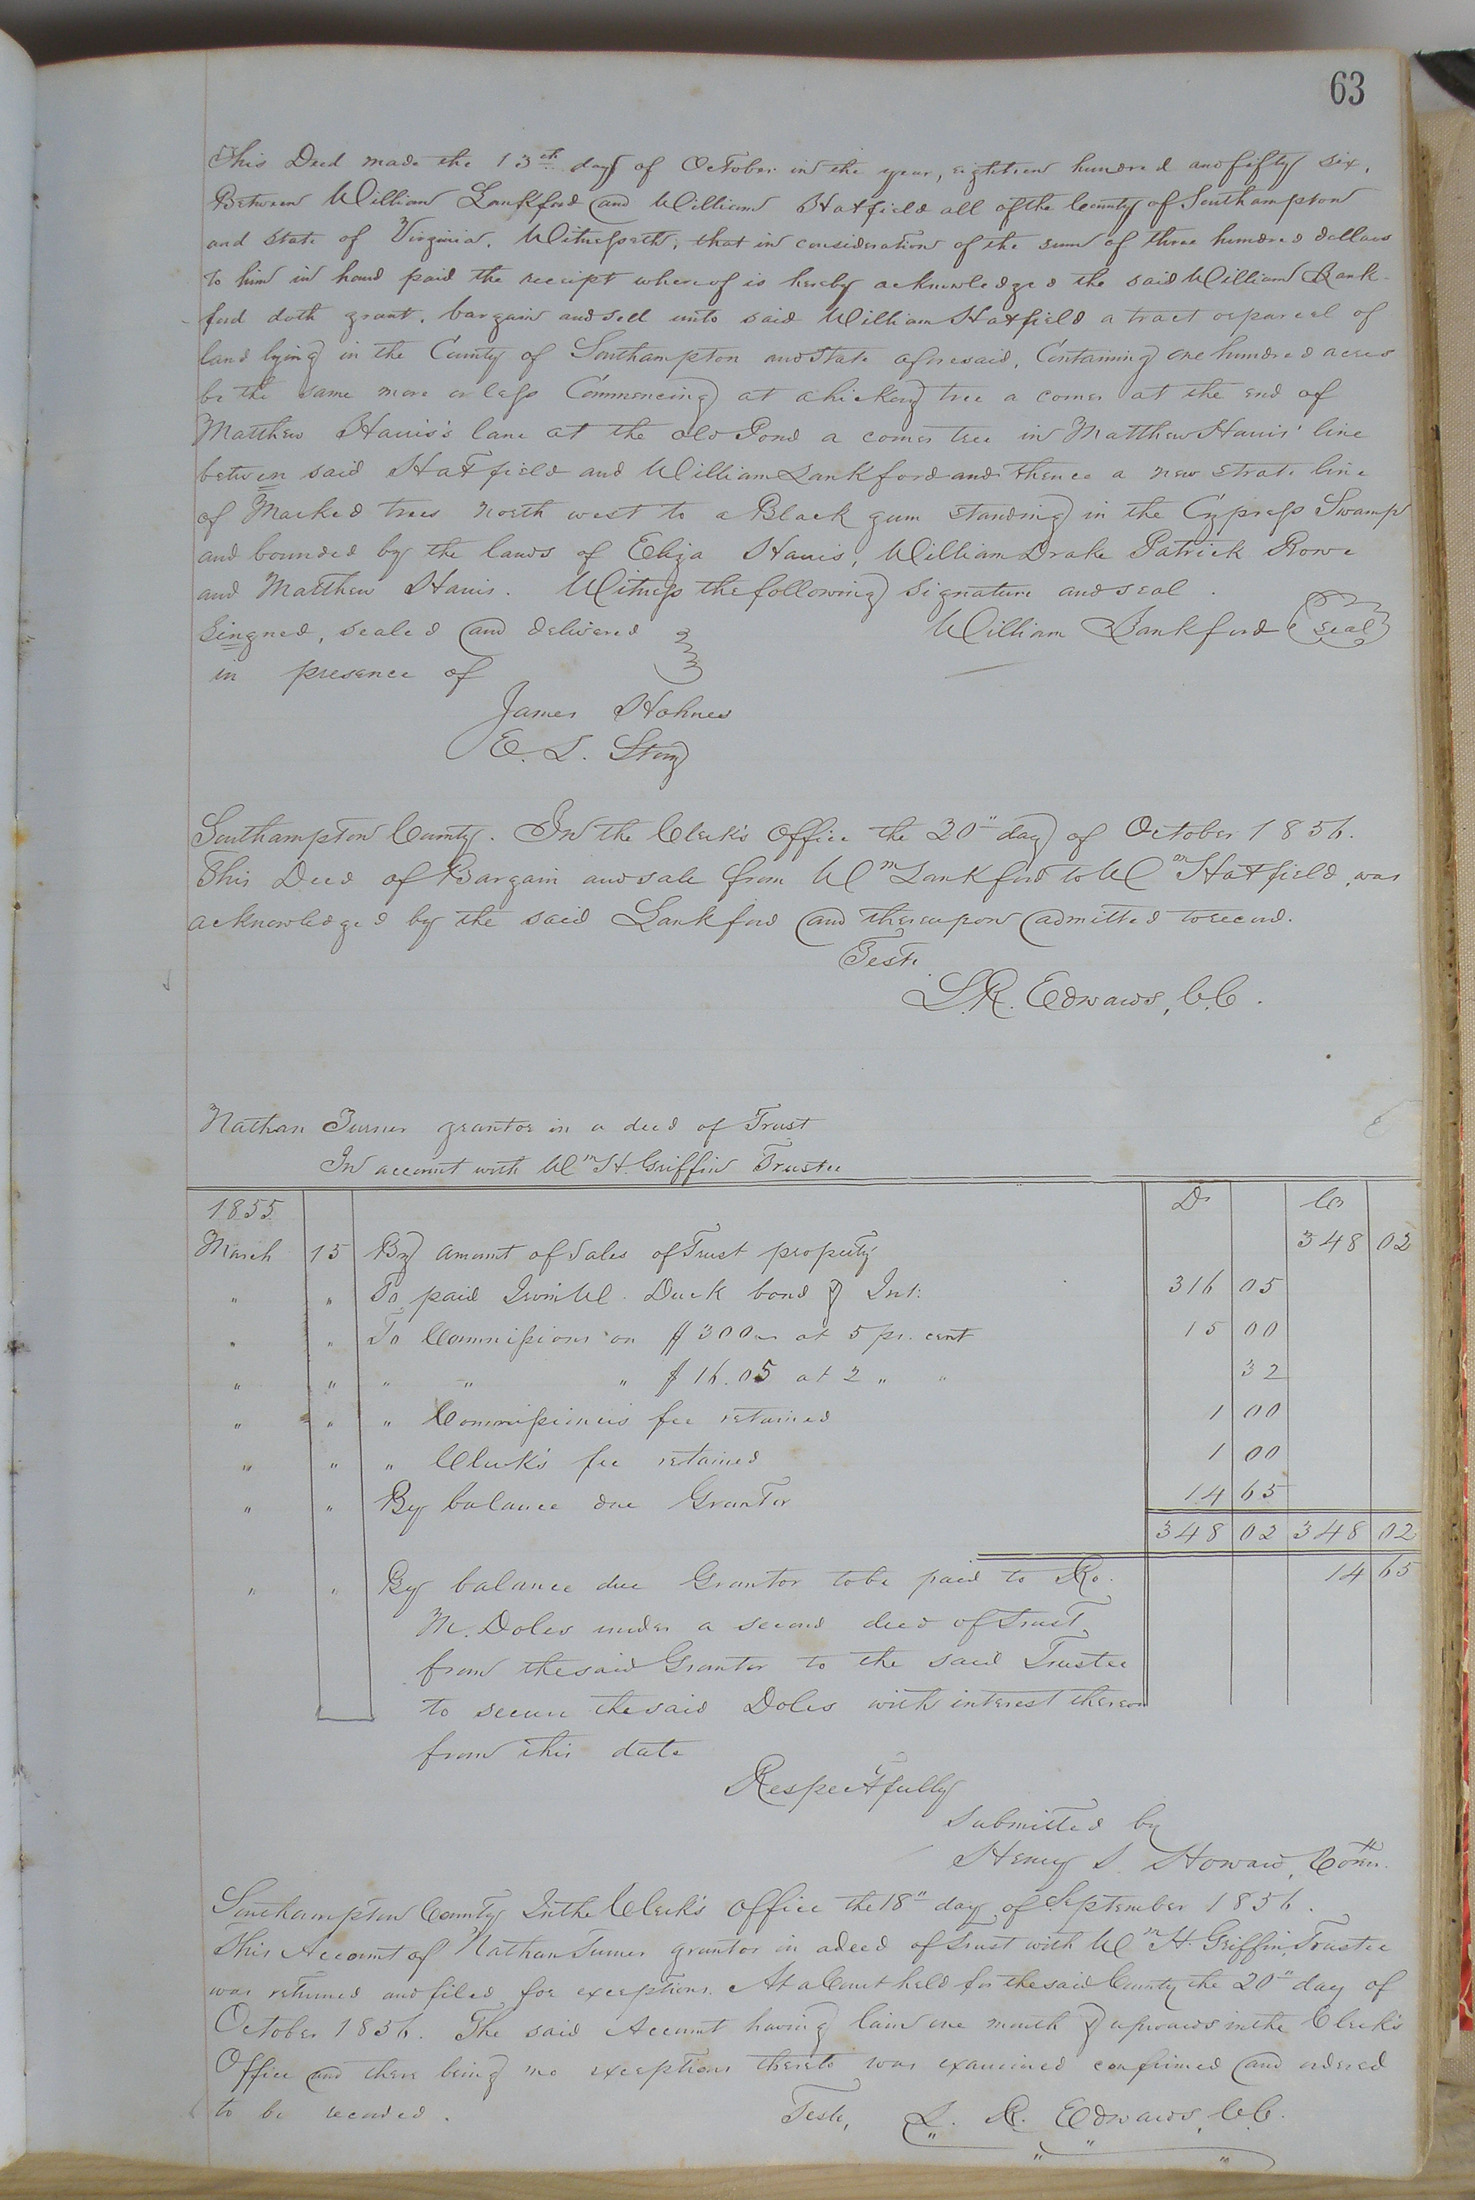 63
This Deed made the 13th day of October in the year, eighteen hundred and fifty six,
Between William Lankford and William Hatfield all of the County of Southampton
and State of Virginia. Witnesseth, that in consideration of the sum of three hundred dollars
to him in hand paid the receipt whereof is hereby acknowledged the said William Lank-
ford doth grant, bargain and sell unto said William Hatfield a tract or parcel of
land lying in the County of Southampton and State aforesaid, Containing one hundred acres
be the same more or less Commencing at a hickory tree a corner at the end of
Matthew Harris's lane at the old Pond a corner tree in Matthew Harris' line
between said Hatfield and William Lankford and thence a new strate line
of Marked trees North west to a Black gum standing in the Cypress Swamp
and bounded by the lands of Eliza Harris, William Drake Patrick Rowe
and Matthew Harris. Witness the following signature and seal.
Singned, sealed and delivered William Lankford seal
in presence of
James Holmes
E. L. Story
Southampton County. In the Clerk's Office the 20" day of October 1856.
This Deed of Bargain and sale from Wm Lankford to Wm Hatfield was
acknowledged by the said Lankford and thereupon admitted to record.
Teste
L.R. Edwards, C.C.
Nathan Turner grantor in a deed of Trust
In account with Wm H. Griffin Trustee
1855 Dr Cr
March 15 By amount of Sales of Trust property 348 02
" " To paid Irwin W. Duck bond & Int: 316 05
" " To Commissions on $300 at 5 pr. cent 15 00
" " " " " $16.05 at 2 " " 32
" " " Commissioners fee retained 1 00
" " " Clerk's fee retained 1 00
" " By balance due Grantor 14 65
348 02 348 02
" " By balance due Grantor to be paid to Ro. 14 65
M. Doles under a second deed of Trust
from the said Grantor to the said Trustee
to secure the said Doles with interest thereon
from this date
Respectfully
Submitted by
Henry S. Howard, Comr.
Southampton County In the Clerk's Office the 18" day of September 1856.
This Account of Nathan Turner grantor in a deed of trust with Wm H. Griffin, Trustee
was returned and filed for exceptions. At a Court held for the said County the 20" day of
October 1856. The said Account having lain one month & upwards in the Clerk's
Office and there being no exceptions thereto was examined confirmed and ordered
to be recorded. Teste, L. R. Edwards, C.C.